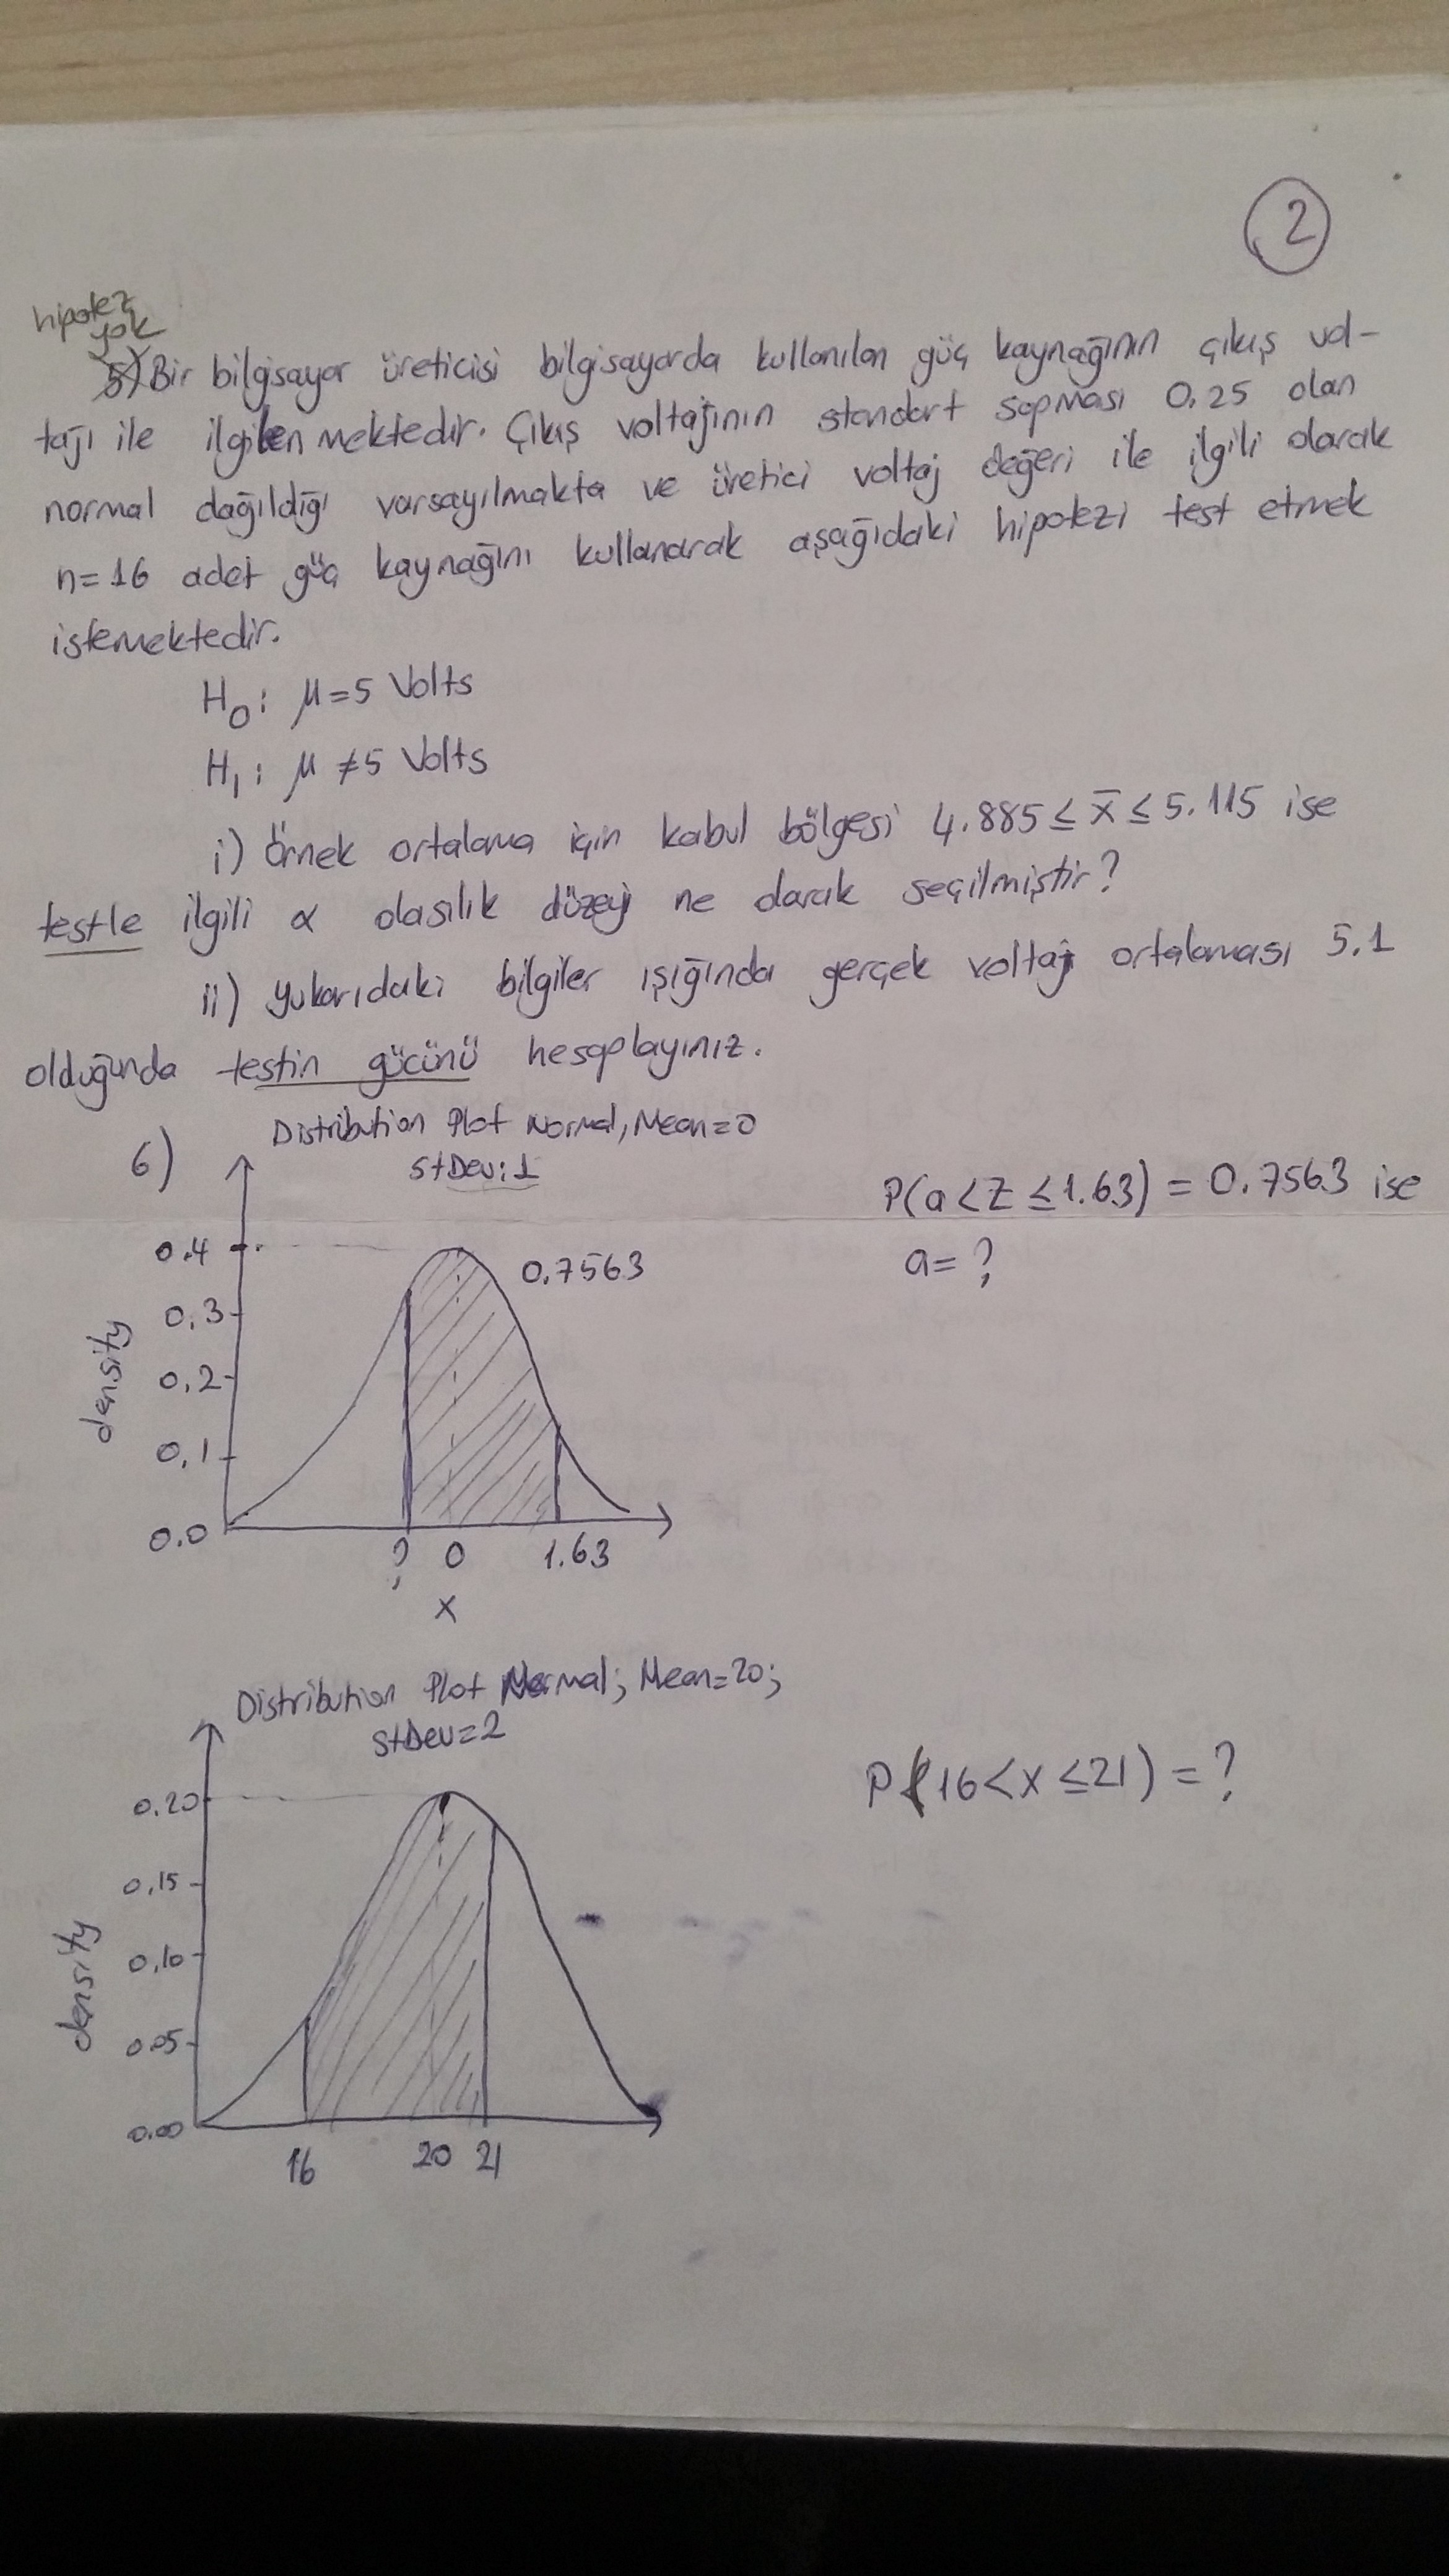 2
hipotez
yok
5) Bir bilgisayar üreticisi bilgisayarda kullanılan güç kaynağının çıkış vol-
tajı ile ilgilenmektedir. Çıkış voltajının standart sapması 0.25 olan
normal dağıldığı varsayılmakta ve üretici voltaj değeri ile ilgili olarak
n=16 adet güç kaynağını kullanarak aşağıdaki hipotezi test etmek
istemektedir.
H₀: μ=5 Volts
H₁: μ≠5 Volts
i) Örnek ortalama için kabul bölgesi 4.885 ≤ x̄ ≤ 5.115 ise
testle ilgili α olasılık düzeyi ne olarak seçilmiştir?
ii) yukarıdaki bilgiler ışığında gerçek voltaj ortalaması 5.1
olduğunda testin gücünü hesaplayınız.
6) Distribution Plot Normal, Mean=0
StDev:1
P(a<Z≤1.63) = 0.7563 ise
a=?
0.7563
density
0.4
0.3
0.2
0.1
0.0
? 0 1.63
x
Distribution Plot Normal; Mean=20;
StDev=2
P(16<x≤21) = ?
density
0.20
0.15
0.10
0.05
0.00
16 20 21